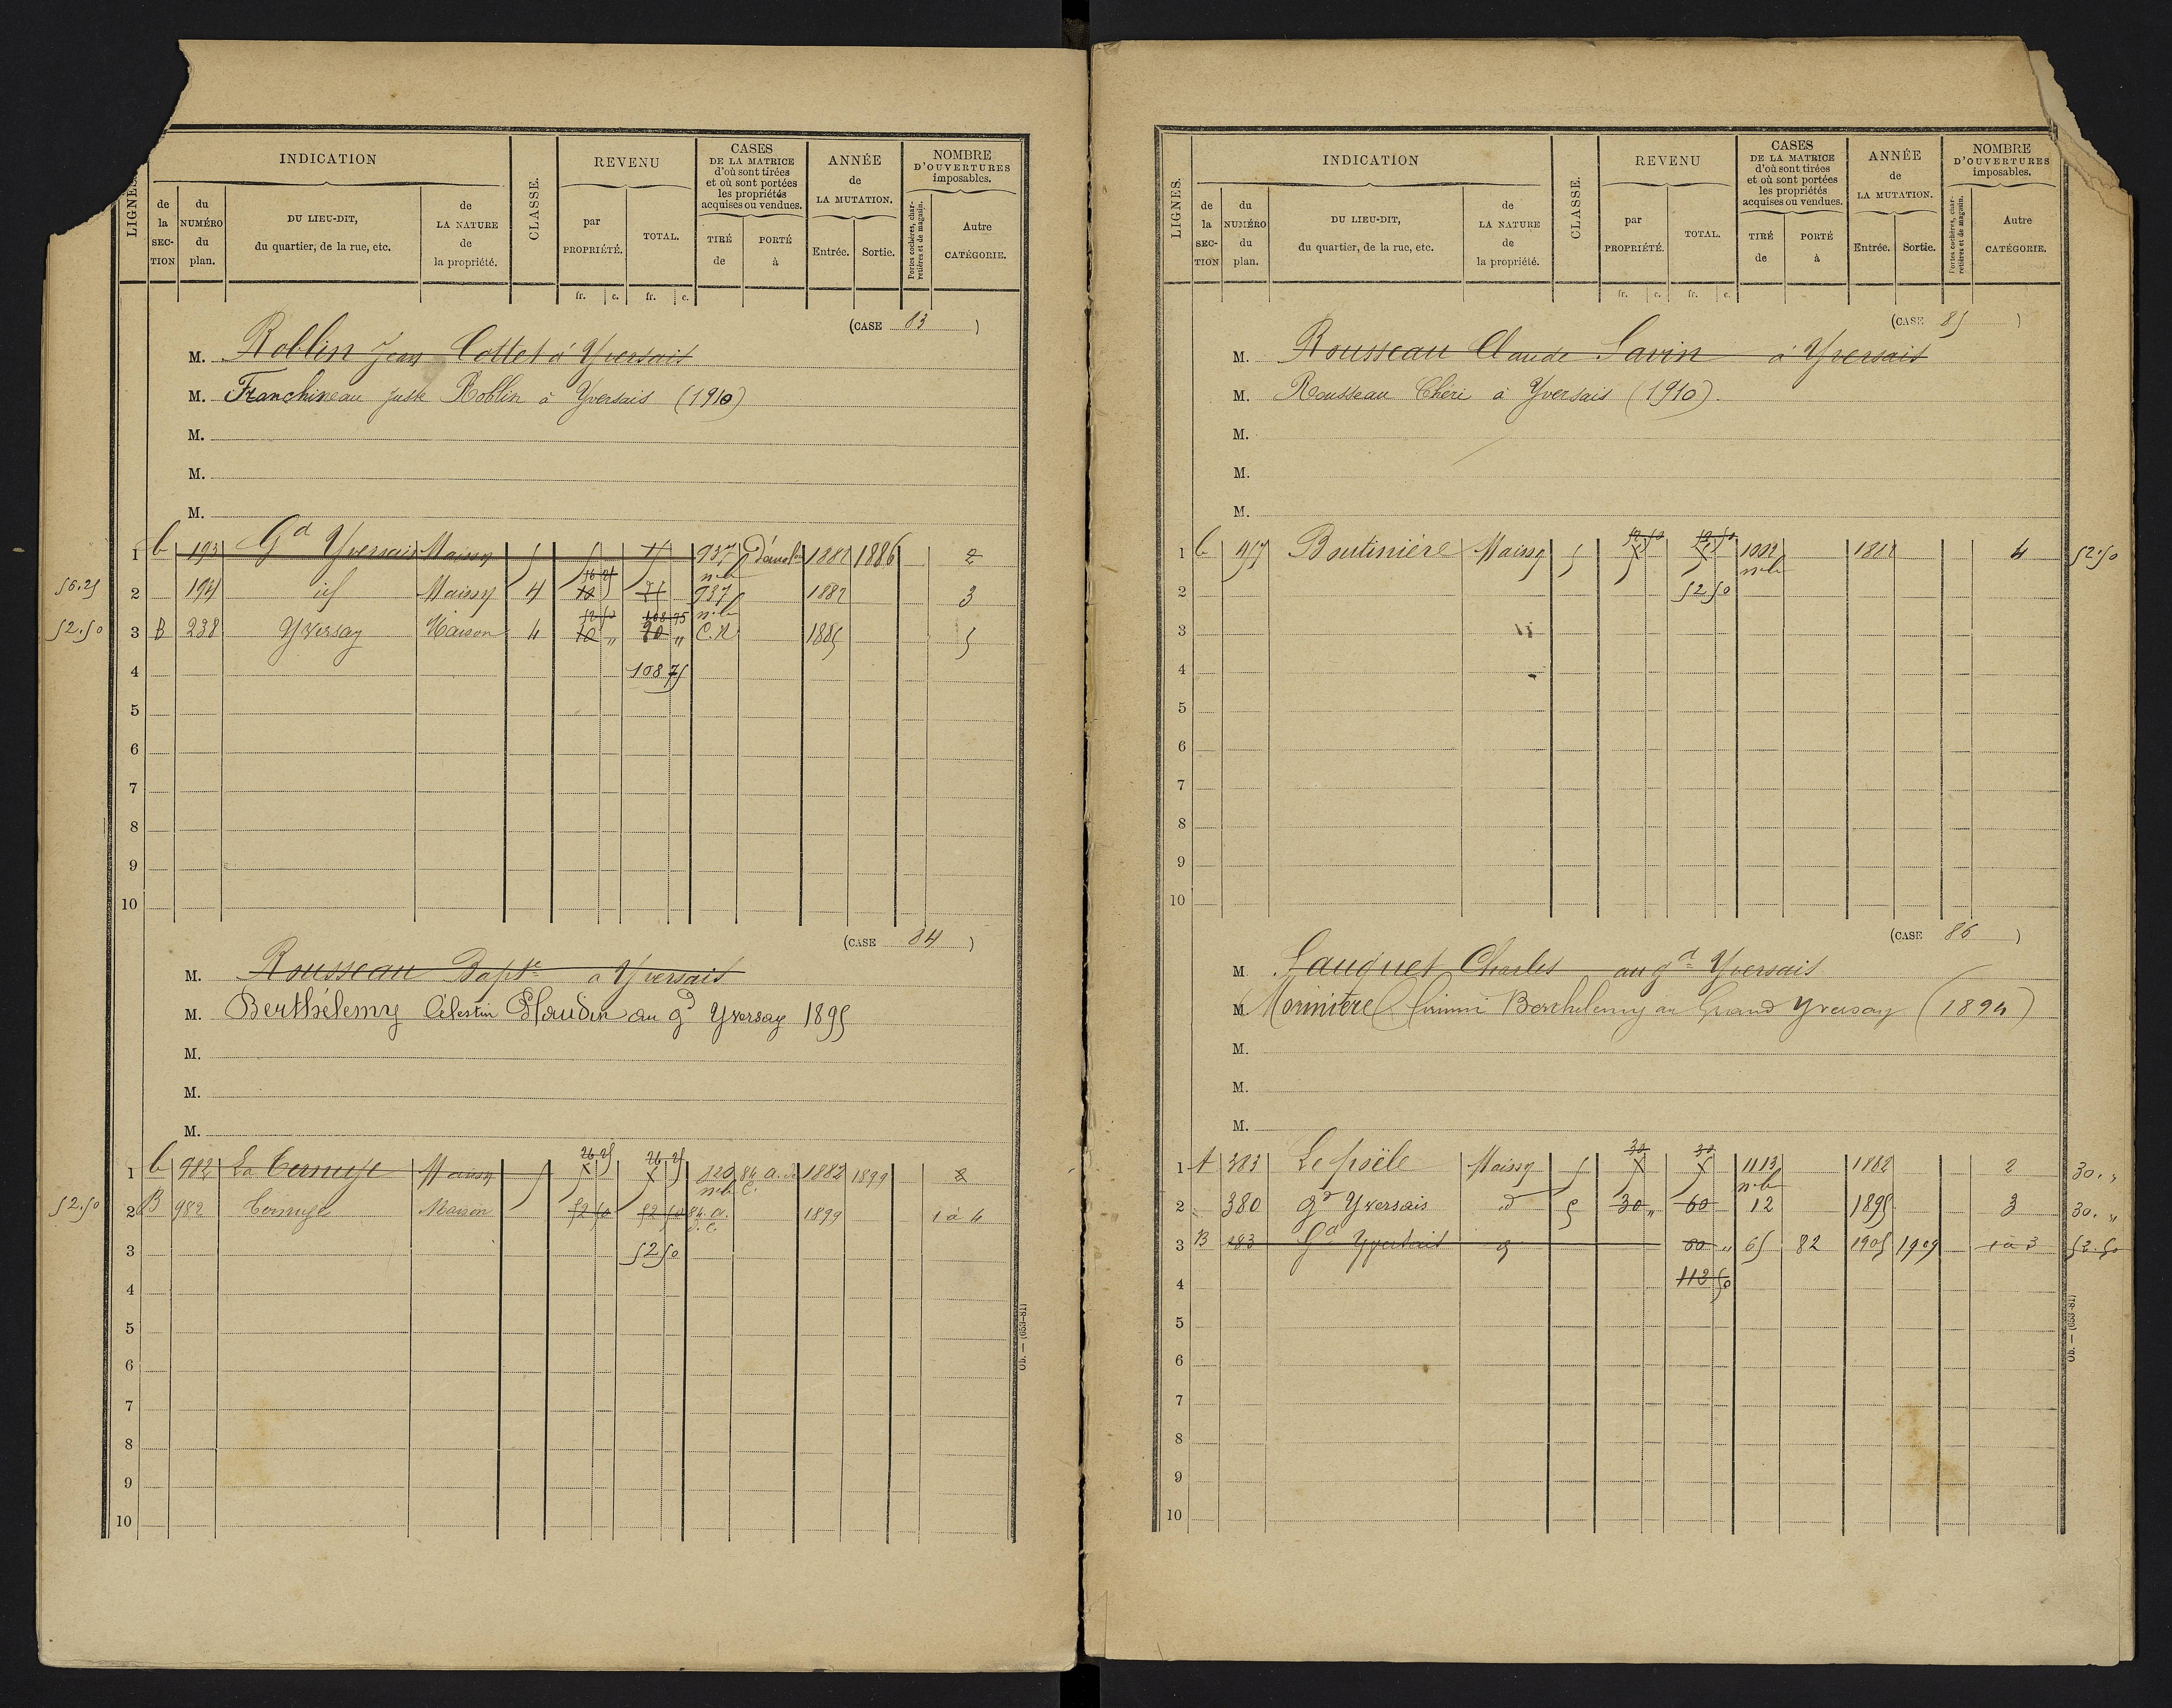 LIGNES.
INDICATION
CLASSE.
REVENU
CASES
DE LA MATRICE
d'où sont tirées
et où sont portées
les propriétés
acquises ou vendues.
ANNÉE
de
LA MUTATION.
NOMBRE
D'OUVERTURES
imposables.
de la SECTION
du NUMÉRO du plan.
DU LIEU-DIT,
du quartier, de la rue, etc.
de LA NATURE de la propriété.
par PROPRIÉTÉ.
TOTAL.
TIRÉ de
PORTÉ à
Entrée.
Sortie.
Portes cochères, charretières et de magasin.
Autre CATÉGORIE.
fr. c. fr. c.
(CASE 83)
M. Roblin Jean Cottet à Yversais
M. Franchineau Juste Roblin à Yversais (1910)
M.
M.
M.
1 C 193 Gd Yversais Maison 5 937 1882 1886 2
56.25 2 194 id Maison 4 56 25 937 1882 3
52.50 3 B 238 Yversay Maison 4 52 50 108 75 C.N 1885 5
4 108 75
5
6
7
8
9
10
(CASE 84)
M. Rousseau Bapte à Yversais
M. Berthélemy Célestin Plaudin au gd Yversay 1895
M.
M.
M.
1 C 982 La Cornuse Maison 5 26 25 26 25 84 a. 1882 1899 2
52.50 2 B 982 Cornuse Maison 52 50 52 50 84. a. 1899 1 à 4
3 52 50
4
5
6
7
8
9
10
Ob. — (653-81)
LIGNES.
INDICATION
CLASSE.
REVENU
CASES
DE LA MATRICE
d'où sont tirées
et où sont portées
les propriétés
acquises ou vendues.
ANNÉE
de
LA MUTATION.
NOMBRE
D'OUVERTURES
imposables.
de la SECTION
du NUMÉRO du plan.
DU LIEU-DIT,
du quartier, de la rue, etc.
de LA NATURE de la propriété.
par PROPRIÉTÉ.
TOTAL.
TIRÉ de
PORTÉ à
Entrée.
Sortie.
Portes cochères, charretières et de magasin.
Autre CATÉGORIE.
fr. c. fr. c.
(CASE 85)
M. Rousseau Claude Savin à Yversais
M. Rousseau Chéri à Yversais (1910)
M.
M.
M.
1 C Boutinière Maison 5 1882 4 52.50
2 52 50
3
4
5
6
7
8
9
10
(CASE 86)
M. Sauquet Charles au gd Yversais
M. Morinière Firmin Berthelemy au Grand Yversay (1894)
M.
M.
M.
1 A 383 Le poële Maison 5 30 30 1113 1882 2 30. "
2 380 gd Yversais d 5 30 " 60 12 1895 3 30. "
3 B 283 Gd Yversais 60 " 65 82 1905 1909 1 à 3 52.50
4 112 50
5
6
7
8
9
10
Ob. — (653-81)